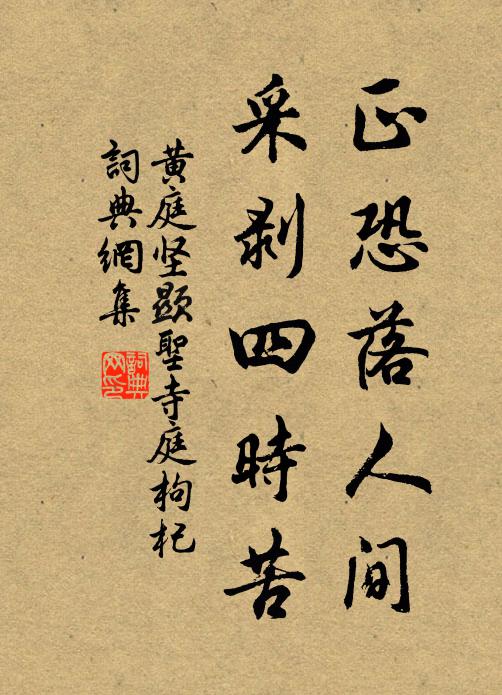 正恐落人间
采剥四時苦
黄庭坚顯聖寺庭枸杞
詞典網集
詞典网印